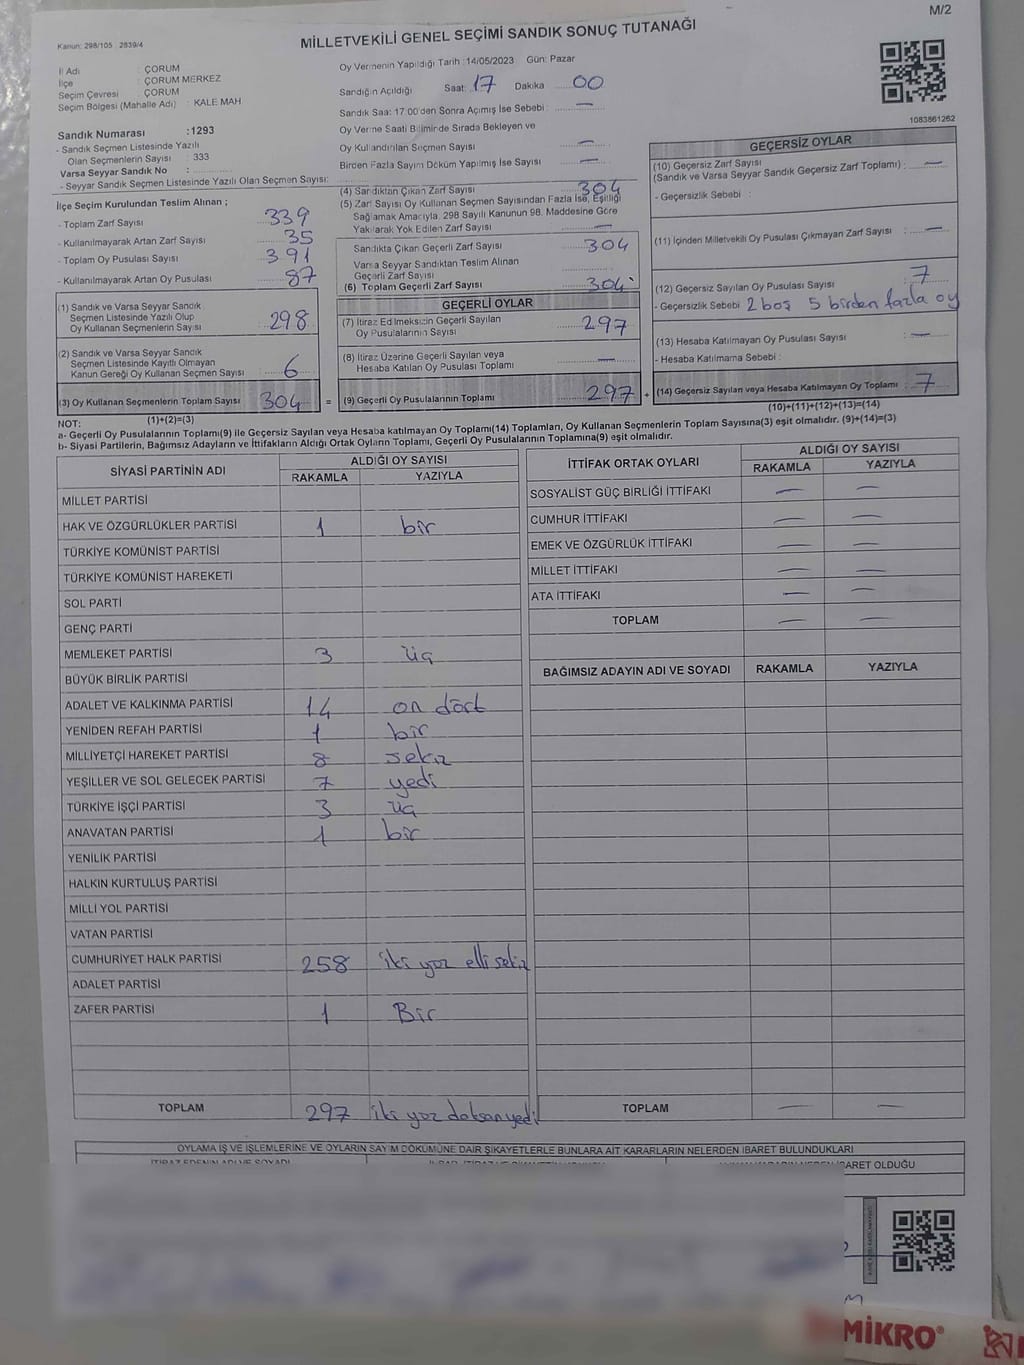 M/2
Kanun: 298/105 : 2839/4
MİLLETVEKİLİ GENEL SEÇİMİ SANDIK SONUÇ TUTANAĞI
İl Adı : ÇORUM
İlçe : ÇORUM MERKEZ
Seçim Çevresi : ÇORUM
Seçim Bölgesi (Mahalle Adı) : KALE MAH
Oy Vermenin Yapıldığı Tarih :14/05/2023 Gün: Pazar
Sandığın Açıldığı Saat: 17 Dakika 00
Sandık Saa: 17:00'den Sonra Açımış İse Sebebi : —
Oy Verme Saati Bitiminde Sırada Bekleyen ve
Oy Kullandırılan Seçmen Sayısı : —
Birden Fazla Sayım Döküm Yapılmış İse Sayısı : —
1083861262
Sandık Numarası :1293
- Sandık Seçmen Listesinde Yazılı
Olan Seçmenlerin Sayısı : 333
Varsa Seyyar Sandık No :
- Seyyar Sandık Seçmen Listesinde Yazılı Olan Seçmen Sayısı:
İlçe Seçim Kurulundan Teslim Alınan ;
- Toplam Zarf Sayısı 339
- Kullanılmayarak Artan Zarf Sayısı 35
- Toplam Oy Pusulası Sayısı 391
- Kullanılmayarak Artan Oy Pusulası 87
(1) Sandık ve Varsa Seyyar Sandık
Seçmen Listesinde Yazılı Olup
Oy Kullanan Seçmenlerin Sayısı 298
(2) Sandık ve Varsa Seyyar Sandık
Seçmen Listesinde Kayıtlı Olmayan
Kanun Gereği Oy Kullanan Seçmen Sayısı 6
(3) Oy Kullanan Seçmenlerin Toplam Sayısı 304 =
(1)+(2)=(3)
(4) Sandıktan Çıkan Zarf Sayısı 304
(5) Zarf Sayısı Oy Kullanan Seçmen Sayısından Fazla İse, Eşitliği
Sağlamak Amacıyla, 298 Sayılı Kanunun 98. Maddesine Göre
Yakılarak Yok Edilen Zarf Sayısı —
Sandıkta Çıkan Geçerli Zarf Sayısı 304
Varsa Seyyar Sandıktan Teslim Alınan
Geçerli Zarf Sayısı
(6) Toplam Geçerli Zarf Sayısı 304
GEÇERLİ OYLAR
(7) İtiraz Edilmeksizin Geçerli Sayılan
Oy Pusulalarının Sayısı 297
(8) İtiraz Üzerine Geçerli Sayılan veya
Hesaba Katılan Oy Pusulası Toplamı —
(9) Geçerli Oy Pusulalarının Toplamı 297 +
GEÇERSİZ OYLAR
(10) Geçersiz Zarf Sayısı
(Sandık ve Varsa Seyyar Sandık Geçersiz Zarf Toplamı) : —
- Geçersizlik Sebebi :
(11) İçinden Milletvekili Oy Pusulası Çıkmayan Zarf Sayısı : —
(12) Geçersiz Sayılan Oy Pusulası Sayısı 7
- Geçersizlik Sebebi 2 boş 5 birden fazla oy
(13) Hesaba Katılmayan Oy Pusulası Sayısı : —
- Hesaba Katılmama Sebebi :
(14) Geçersiz Sayılan veya Hesaba Katılmayan Oy Toplamı : 7
(10)+(11)+(12)+(13)=(14)
NOT:
a- Geçerli Oy Pusulalarının Toplamı(9) ile Geçersiz Sayılan veya Hesaba katılmayan Oy Toplamı(14) Toplamları, Oy Kullanan Seçmenlerin Toplam Sayısına(3) eşit olmalıdır. (9)+(14)=(3)
b- Siyasi Partilerin, Bağımsız Adayların ve İttifakların Aldığı Ortak Oyların Toplamı, Geçerli Oy Pusulalarının Toplamına(9) eşit olmalıdır.
SİYASİ PARTİNİN ADI
ALDIĞI OY SAYISI
RAKAMLA YAZIYLA
MİLLET PARTİSİ
HAK VE ÖZGÜRLÜKLER PARTİSİ 1 bir
TÜRKİYE KOMÜNİST PARTİSİ
TÜRKİYE KOMÜNİST HAREKETİ
SOL PARTİ
GENÇ PARTİ
MEMLEKET PARTİSİ 3 üç
BÜYÜK BİRLİK PARTİSİ
ADALET VE KALKINMA PARTİSİ 14 on dört
YENİDEN REFAH PARTİSİ 1 bir
MİLLİYETÇİ HAREKET PARTİSİ 8 sekiz
YEŞİLLER VE SOL GELECEK PARTİSİ 7 yedi
TÜRKİYE İŞÇİ PARTİSİ 3 üç
ANAVATAN PARTİSİ 1 bir
YENİLİK PARTİSİ
HALKIN KURTULUŞ PARTİSİ
MİLLİ YOL PARTİSİ
VATAN PARTİSİ
CUMHURİYET HALK PARTİSİ 258 iki yüz elli sekiz
ADALET PARTİSİ
ZAFER PARTİSİ 1 Bir
TOPLAM 297 iki yüz doksan yedi
İTTİFAK ORTAK OYLARI
ALDIĞI OY SAYISI
RAKAMLA YAZIYLA
SOSYALİST GÜÇ BİRLİĞİ İTTİFAKI — —
CUMHUR İTTİFAKI — —
EMEK VE ÖZGÜRLÜK İTTİFAKI — —
MİLLET İTTİFAKI — —
ATA İTTİFAKI — —
TOPLAM — —
BAĞIMSIZ ADAYIN ADI VE SOYADI RAKAMLA YAZIYLA
TOPLAM — —
OYLAMA İŞ VE İŞLEMLERİNE VE OYLARIN SAYIM DÖKÜMÜNE DAİR ŞİKAYETLERLE BUNLARA AİT KARARLARIN NELERDEN İBARET BULUNDUKLARI
İBARET OLDUĞU
MİKRO